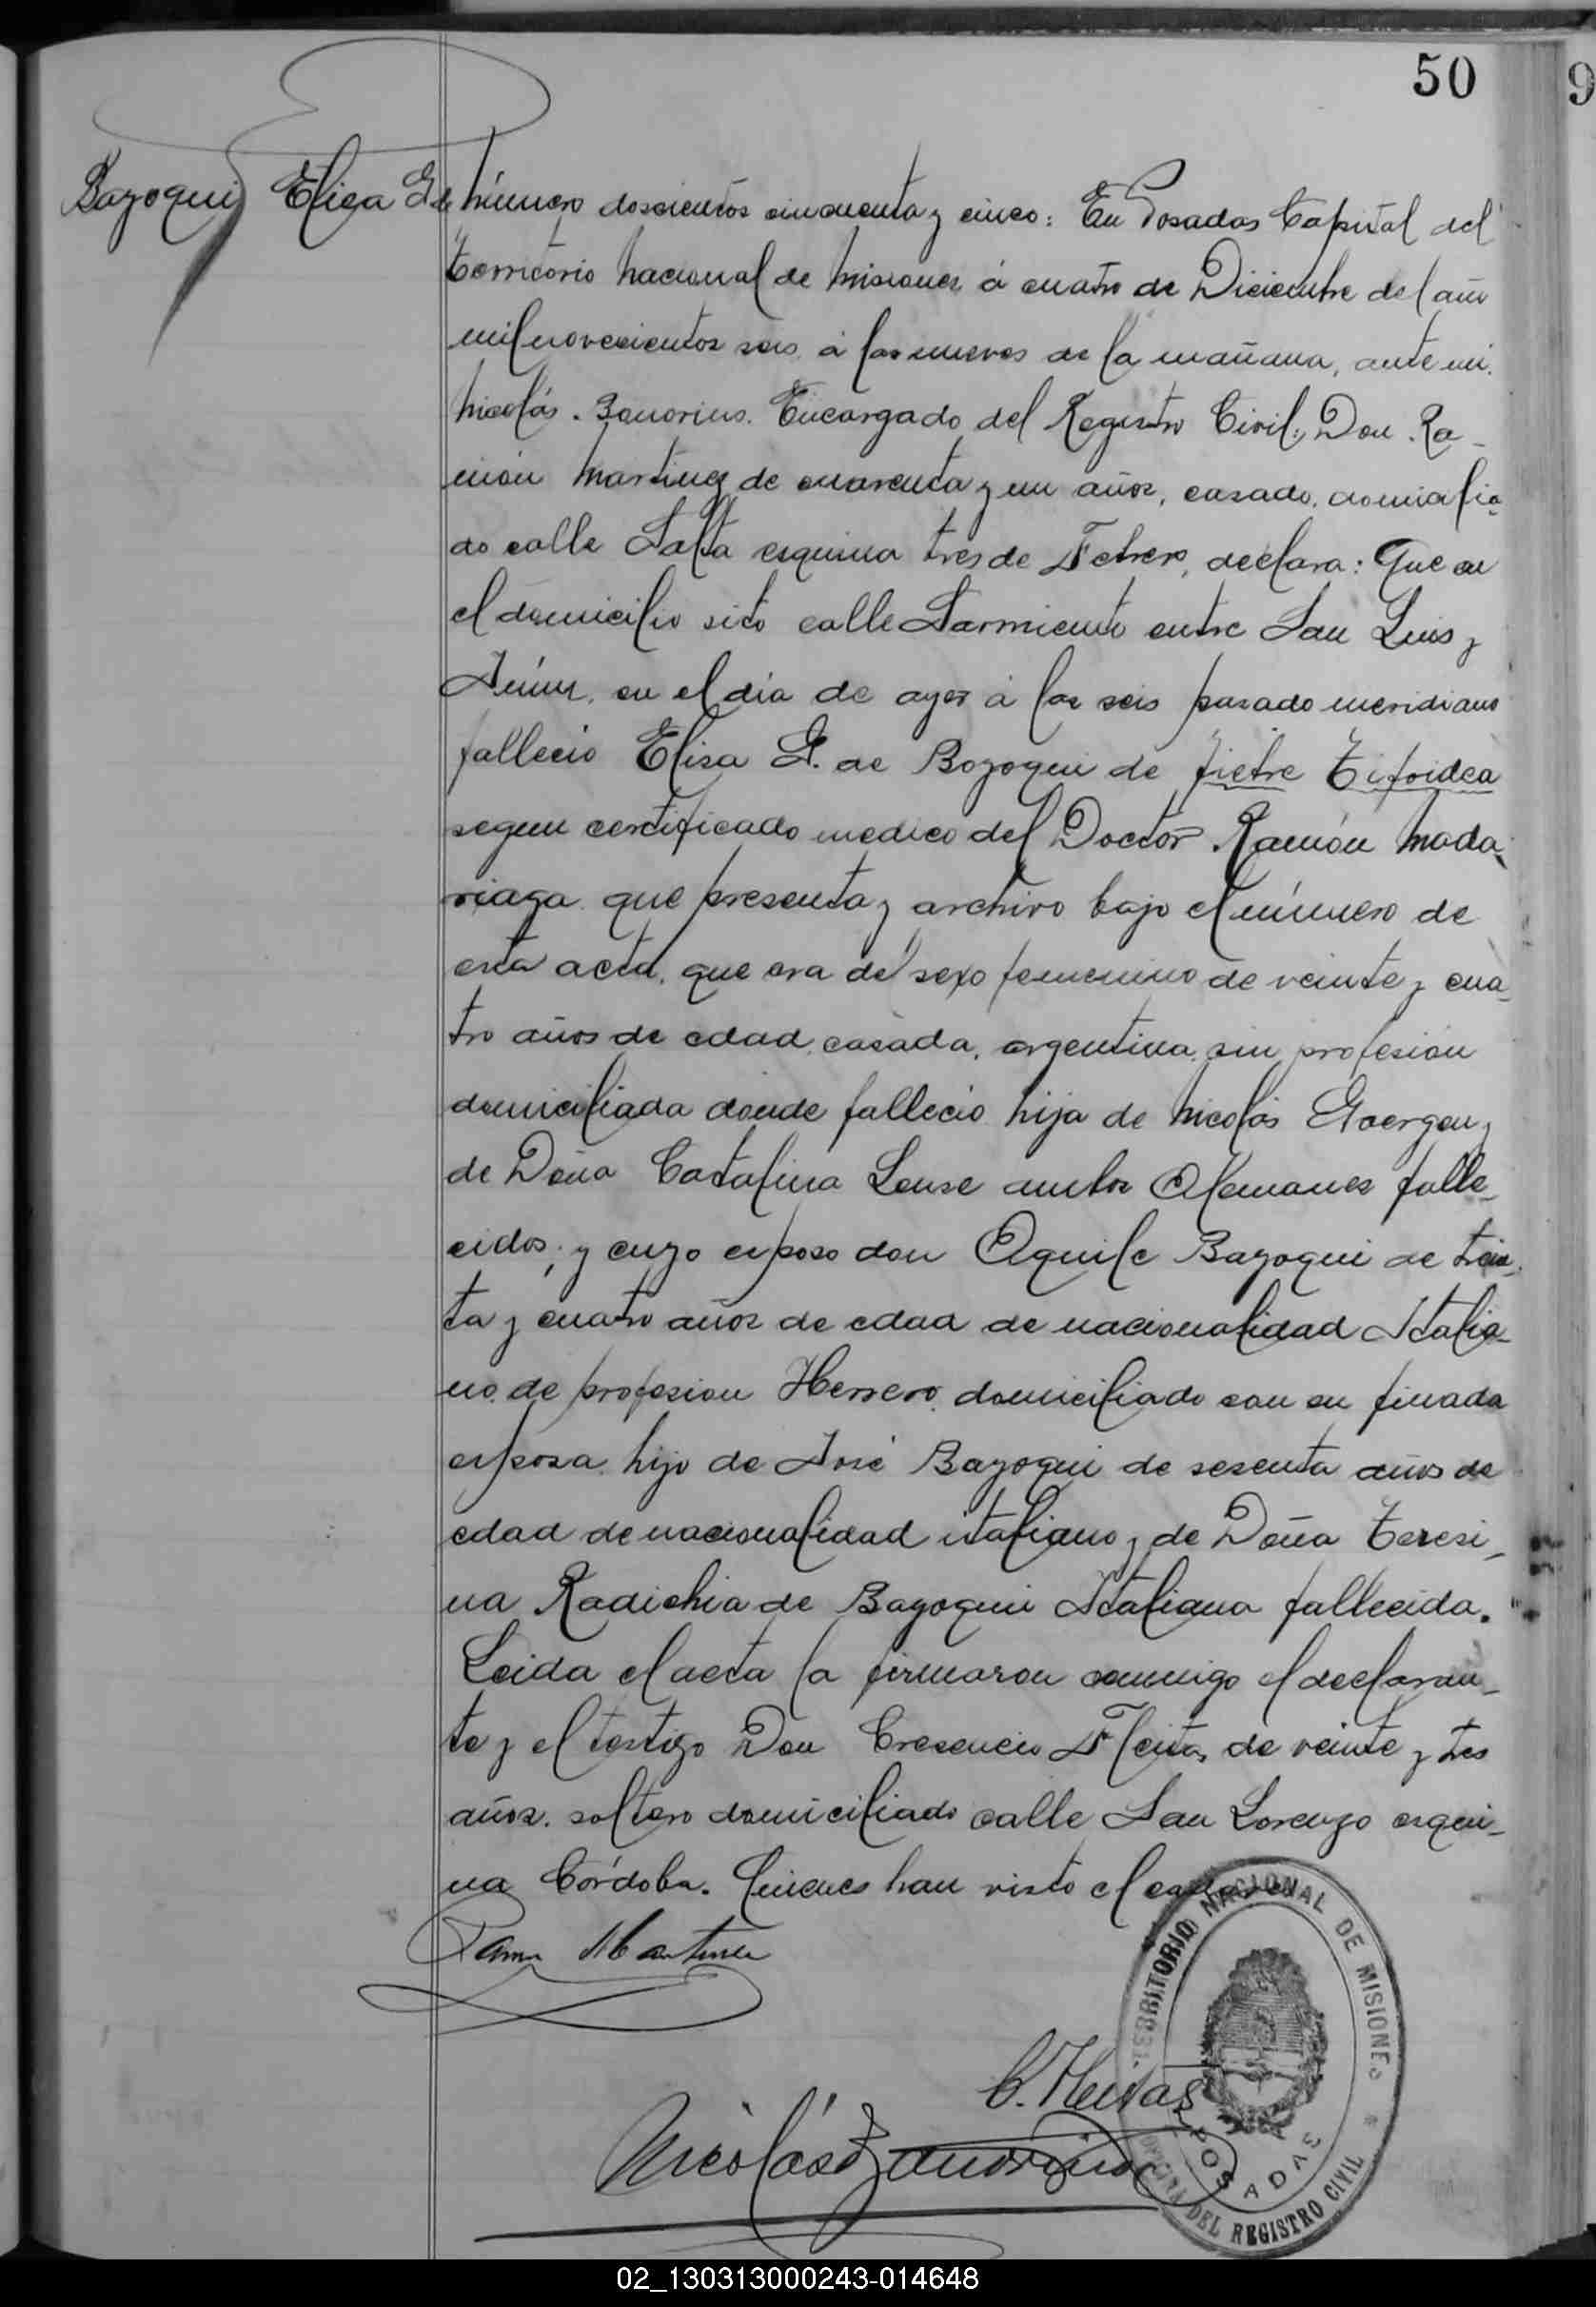 50
9
Bazoqui Elisa G. de
Número doscientos cincuenta y cinco: En Posadas Capital del
territorio nacional de Misiones á cuatro de Diciembre del año
mil novecientos seis á las nueves de la mañana, ante mi.
Nicolás. Encargado del Registro Civil; Don Ra-
món Martinez de cuarenta y un años, casado, domicilia-
do calle Salta esquina tres de Febrero, declara: Que en
el domicilio sito calle Sarmiento entre San Luis y
Junin, en el día de ayer á las seis pasado meridiano
fallecio Elisa G. de Bozoqui de fiebre Tifoidea
segun certificado medico del Doctor Ramón Mada-
riaga que presenta y archivo bajo el número de
esta acta, que era del sexo femenino de veinte y cua-
tro años de edad, casada, argentina, sin profesión
domiciliada donde fallecio hija de Nicolás Goergen y
de Doña Catalina Lense ambos Alemanes falle-
cidos; y cuyo esposo don Aquile Bazoqui de trein-
ta y cuatro años de edad de nacionalidad Italia-
no, de profesion Herrero, domiciliado con su finada
esposa hijo de José Bazoqui de sesenta años de
edad de nacionalidad italiano y de Doña Teresi-
na Radichia de Bazoqui Italiana fallecida.
Leida el acta la firmaron conmigo el declaran-
te y el testigo Don Cresencio Fleitas de veinte y tres
años, soltero domiciliado calle San Lorenzo esqui-
na Córdoba. Quienes han visto el cadaver
Ramon Martinez
C. Fleitas
Nicolás
TERRITORIO NACIONAL DE MISIONES
POSADAS
OFICINA DEL REGISTRO CIVIL
02_130313000243-014648